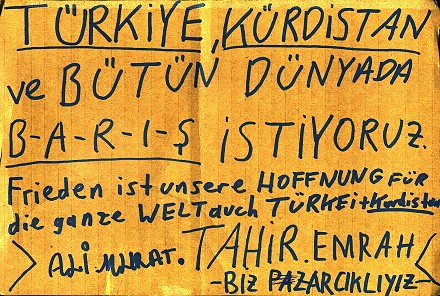 TÜRKİYE, KÜRDİSTAN
ve BÜTÜN DÜNYADA
B-A-R-I-Ş İSTİYORUZ.
Frieden ist unsere HOFFNUNG FÜR
die ganze WELT auch TÜRKEi+Kurdistan
ALİ MURAT. TAHİR. EMRAH
-BİZ PAZARCIKLIYIZ-